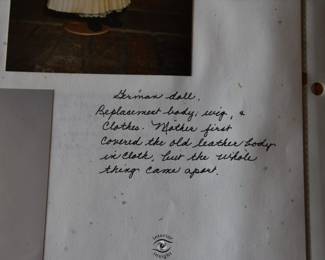 German doll.
Replacement body, wig, &
Clothes. Mother first
Covered the old leather body
in cloth, but the whole
thing came apart.
interior
insight